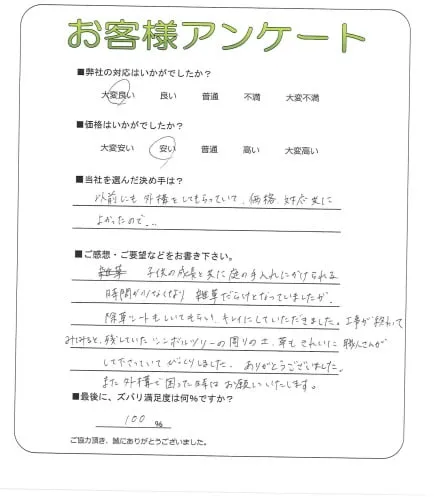 お客様アンケート
■弊社の対応はいかがでしたか?
大変良い 良い 普通 不満 大変不満
■価格はいかがでしたか?
大変安い 安い 普通 高い 大変高い
■当社を選んだ決め手は?
以前にも外構をしてもらっていて、価格、対応共に
よかったので…
■ご感想・ご要望などをお書き下さい。
雑草 子供の成長と共に庭の手入れにかけられる
時間が少なくなり 雑草だらけとなっていましたが、
除草シートもしいてもらい、キレイにしていただきました。工事が終わって
みてみると、残していたシンボルツリーの周りの土、草もきれいに職人さんが
して下さっていてびっくりしました。ありがとうございました。
また外構で困った時はお願いいたします。
■最後に、ズバリ満足度は何%ですか?
100 %
ご協力頂き、誠にありがとうございました。